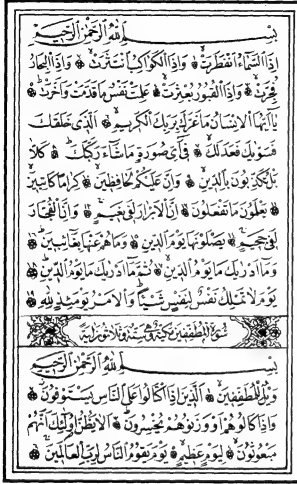 بِسْمِ اللّٰهِ الرَّحْمٰنِ الرَّحِيمِ
اِذَا السَّمَاءُ انْفَطَرَتْ وَاِذَا الْكَوَاكِبُ انْتَثَرَتْ وَاِذَا الْبِحَارُ
فُجِّرَتْ وَاِذَا الْقُبُورُ بُعْثِرَتْ عَلِمَتْ نَفْسٌ مَا قَدَّمَتْ وَاَخَّرَتْ
يَا اَيُّهَا الْاِنْسَانُ مَا غَرَّكَ بِرَبِّكَ الْكَرِيمِ اَلَّذِى خَلَقَكَ
فَسَوّٰيكَ فَعَدَلَكَ فِى اَىِّ صُورَةٍ مَا شَاءَ رَكَّبَكَ كَلَّا
بَلْ تُكَذِّبُونَ بِالدِّينِ وَاِنَّ عَلَيْكُمْ لَحَافِظِينَ كِرَامًا كَاتِبِينَ
يَعْلَمُونَ مَا تَفْعَلُونَ اِنَّ الْاَبْرَارَ لَفِى نَعِيمٍ وَاِنَّ الْفُجَّارَ
لَفِى جَحِيمٍ يَصْلَوْنَهَا يَوْمَ الدِّينِ وَمَا هُمْ عَنْهَا بِغَائِبِينَ
وَمَا اَدْرٰيكَ مَا يَوْمُ الدِّينِ ثُمَّ مَا اَدْرٰيكَ مَا يَوْمُ الدِّينِ
يَوْمَ لَا تَمْلِكُ نَفْسٌ لِنَفْسٍ شَيْئًا وَالْاَمْرُ يَوْمَئِذٍ لِلّٰهِ
سُورَةُ الْمُطَفِّفِينَ مَكِّيَّةٌ وَهِىَ سِتٌّ وَثَلَاثُونَ اٰيَةً
بِسْمِ اللّٰهِ الرَّحْمٰنِ الرَّحِيمِ
وَيْلٌ لِلْمُطَفِّفِينَ اَلَّذِينَ اِذَا اكْتَالُوا عَلَى النَّاسِ يَسْتَوْفُونَ
وَاِذَا كَالُوهُمْ اَوْ وَزَنُوهُمْ يُخْسِرُونَ اَلَا يَظُنُّ اُولٰئِكَ اَنَّهُمْ
مَبْعُوثُونَ لِيَوْمٍ عَظِيمٍ يَوْمَ يَقُومُ النَّاسُ لِرَبِّ الْعَالَمِينَ